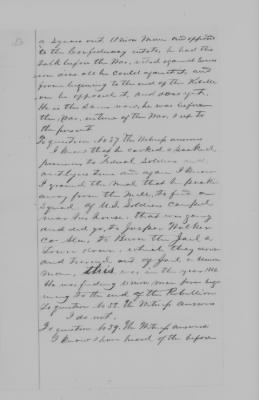 a Square out Union Man and opposed
to the Confederacy intoto, he had this
talk before the War, voted against Secess
ion did all he Could against it, and
from beginning to the end of the Rebelli
on he opposed it, and does yet.
He is the Same now, he was before
the War, in time of the War, & up to
the present
To question No 37 The Witness answers
I know that he cooked & baked
provisions for Federal Soldiers and
time and again I know
I ground the Meal that he packed
away from the Mill, to feed a
Squad of U.S. Soldiers camped
near his house, that was going
and did go, to Jasper Walker
Co Ala, to Burn the Jail a
down, which they done
and turned out of Jail a Union
man, this was in the year 186
He was feeding Union men from begin
ing to the end of the Rebellion
To question No 38. The Witness Answers
I do not.
To question No 39. The Witness Answers
I know have heard of the before